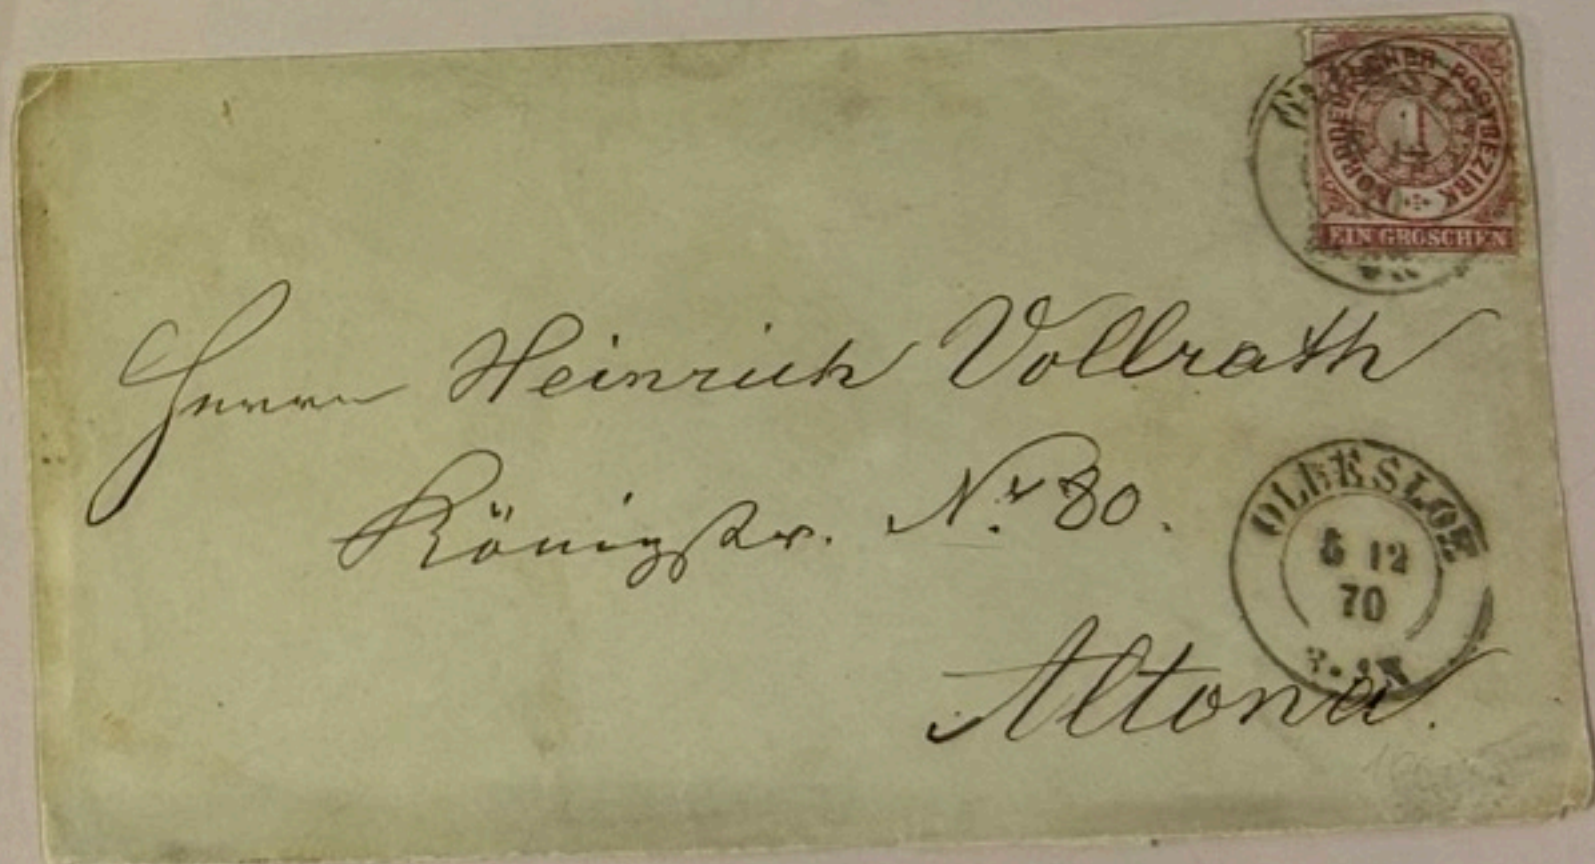 NORDDEUTSCHER POSTBEZIRK
1
EIN GROSCHEN
Herrn Heinrich Vollrath
Königstr. Nr. 80.
Altona.
OLDESLOE
5 12
70